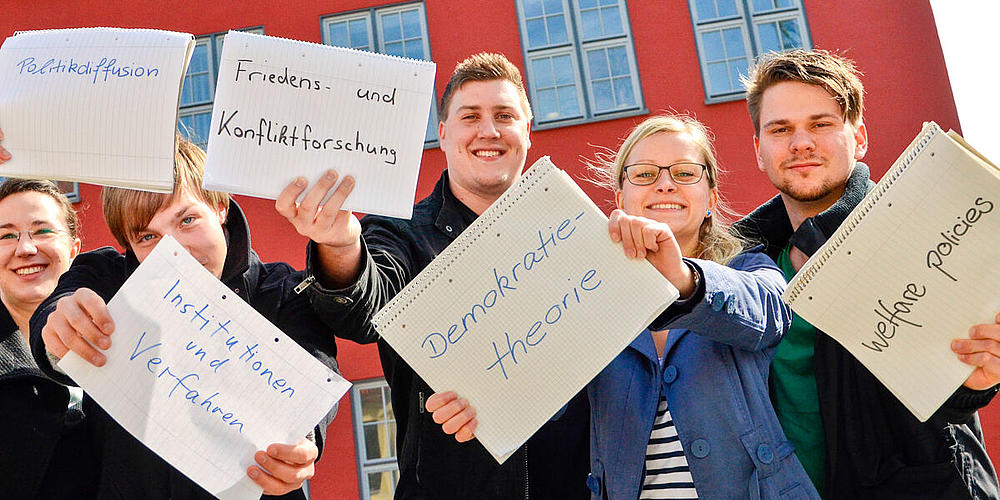 Politikdiffusion
Friedens- und
Konfliktforschung
Institutionen
und
Verfahren
Demokratie-
theorie
welfare policies